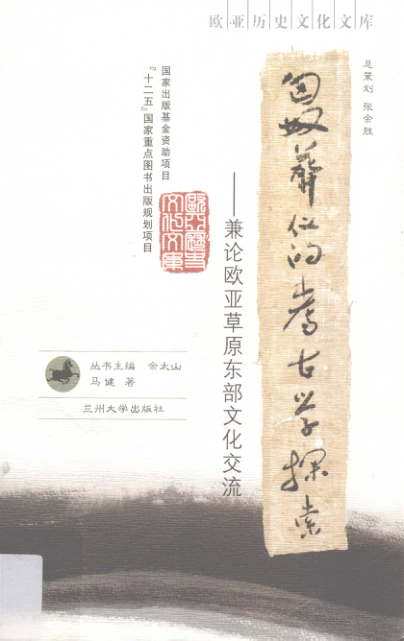 欧亚历史文化文库
总策划 张余胜
匈奴葬仪的考古学探索
——兼论欧亚草原东部文化交流
国家出版基金资助项目
“十二五”国家重点图书出版规划项目
欧亚历史文化文库
丛书主编 余太山
马健 著
兰州大学出版社